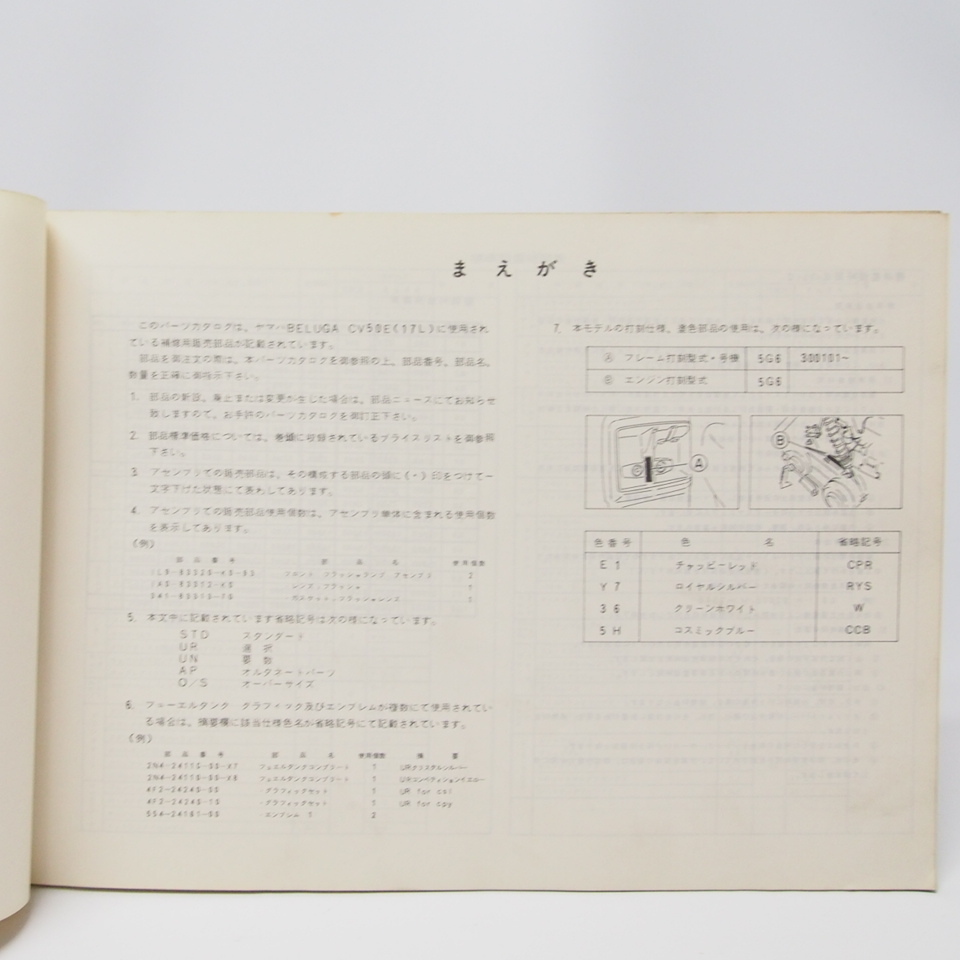 まえがき
このパーツカタログは、ヤマハBELUGA CV50E(17L)に使用され
ている補修用販売部品が記載されています。
部品を御注文の際は、本パーツカタログを御参照の上、部品番号、部品名、
数量を正確に御指示下さい。
1. 部品の新設、廃止または変更が生じた場合は、部品ニュースにてお知らせ
致しますので、お手許のパーツカタログを御訂正下さい。
2. 部品標準価格については、巻頭に収録されているプライスリストを御参照
下さい。
3. アセンブリでの販売部品は、その構成する部品の頭に(・)印をつけて一
文字下げた状態にて表わしてあります。
4. アセンブリでの販売部品使用個数は、アセンブリ単体に含まれる使用個数
を表示してあります。
(例)
部品番号 部品名 使用個数
フロント フラッシャランプ アセンブリ 2
レンズ,フラッシャ 1
5. 本文中に記載されています省略記号は次の様になっています。
STD スタンダード
UR 選択
UN 要数
AP オルタネートパーツ
O/S オーバーサイズ
6. フューエルタンク グラフィック及びエンブレムが複数にて使用されてい
る場合は、摘要欄に該当仕様色名が省略記号にて記載されています。
(例)
部品番号 部品名 使用個数 摘要
2N4-24110-00-X7 フュエルタンクコンプリート 1 URクリスタルシルバー
2N4-24110-00-X8 フュエルタンクコンプリート 1 URコンペティションイエロー
4F2-24240-00 ・グラフィックセット 1 UR for csl
4F2-24240-10 ・グラフィックセット 1 UR for cpy
5S4-24161-00 ・エンブレム 1 2
7. 本モデルの打刻仕様、着色部品の使用は、次の様になっています。
Ⓐ フレーム打刻型式・号機 5G6 300101~
Ⓑ エンジン打刻型式 5G6
Ⓐ
Ⓑ
色番号 色名 省略記号
E1 チャッピーレッド CPR
Y7 ロイヤルシルバー RYS
36 クリーンホワイト W
5H コスミックブルー CCB